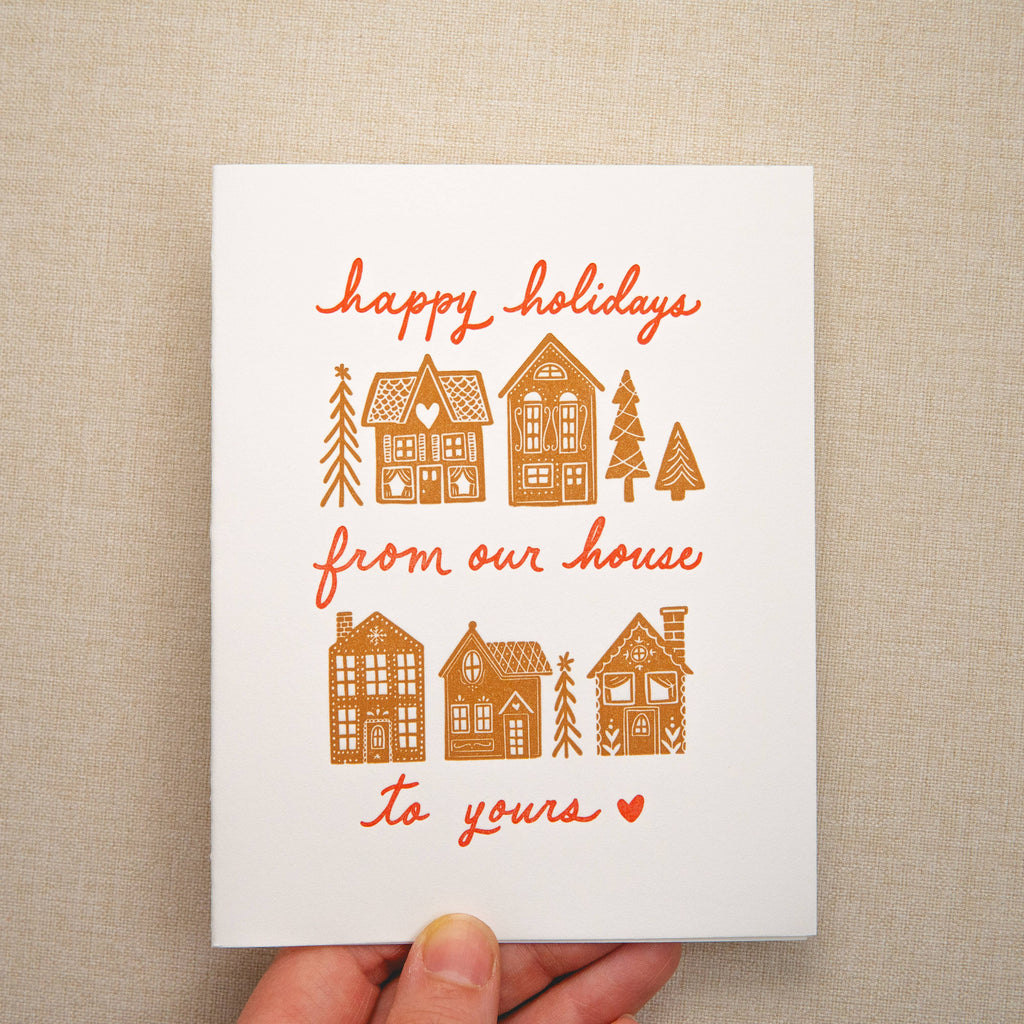 happy holidays
from our house
to yours